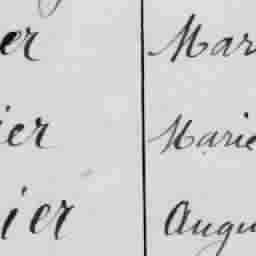 er Mar
ier Marie
ier Augu